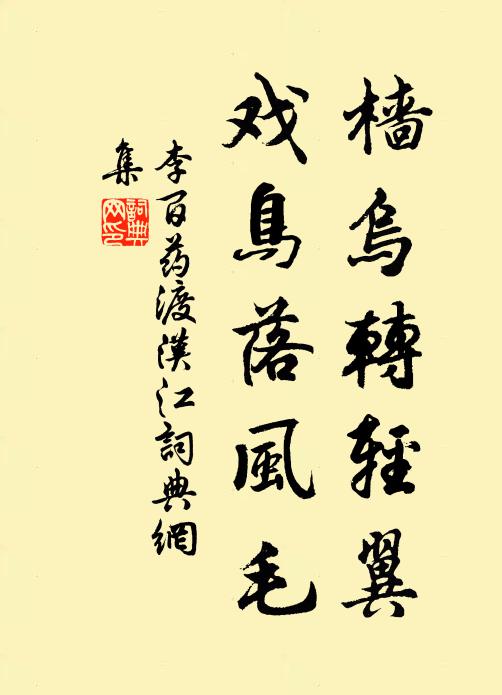 檣烏轉輕翼
戏鳥落風毛
李百药渡漢江詞典網
集
詞典
网印